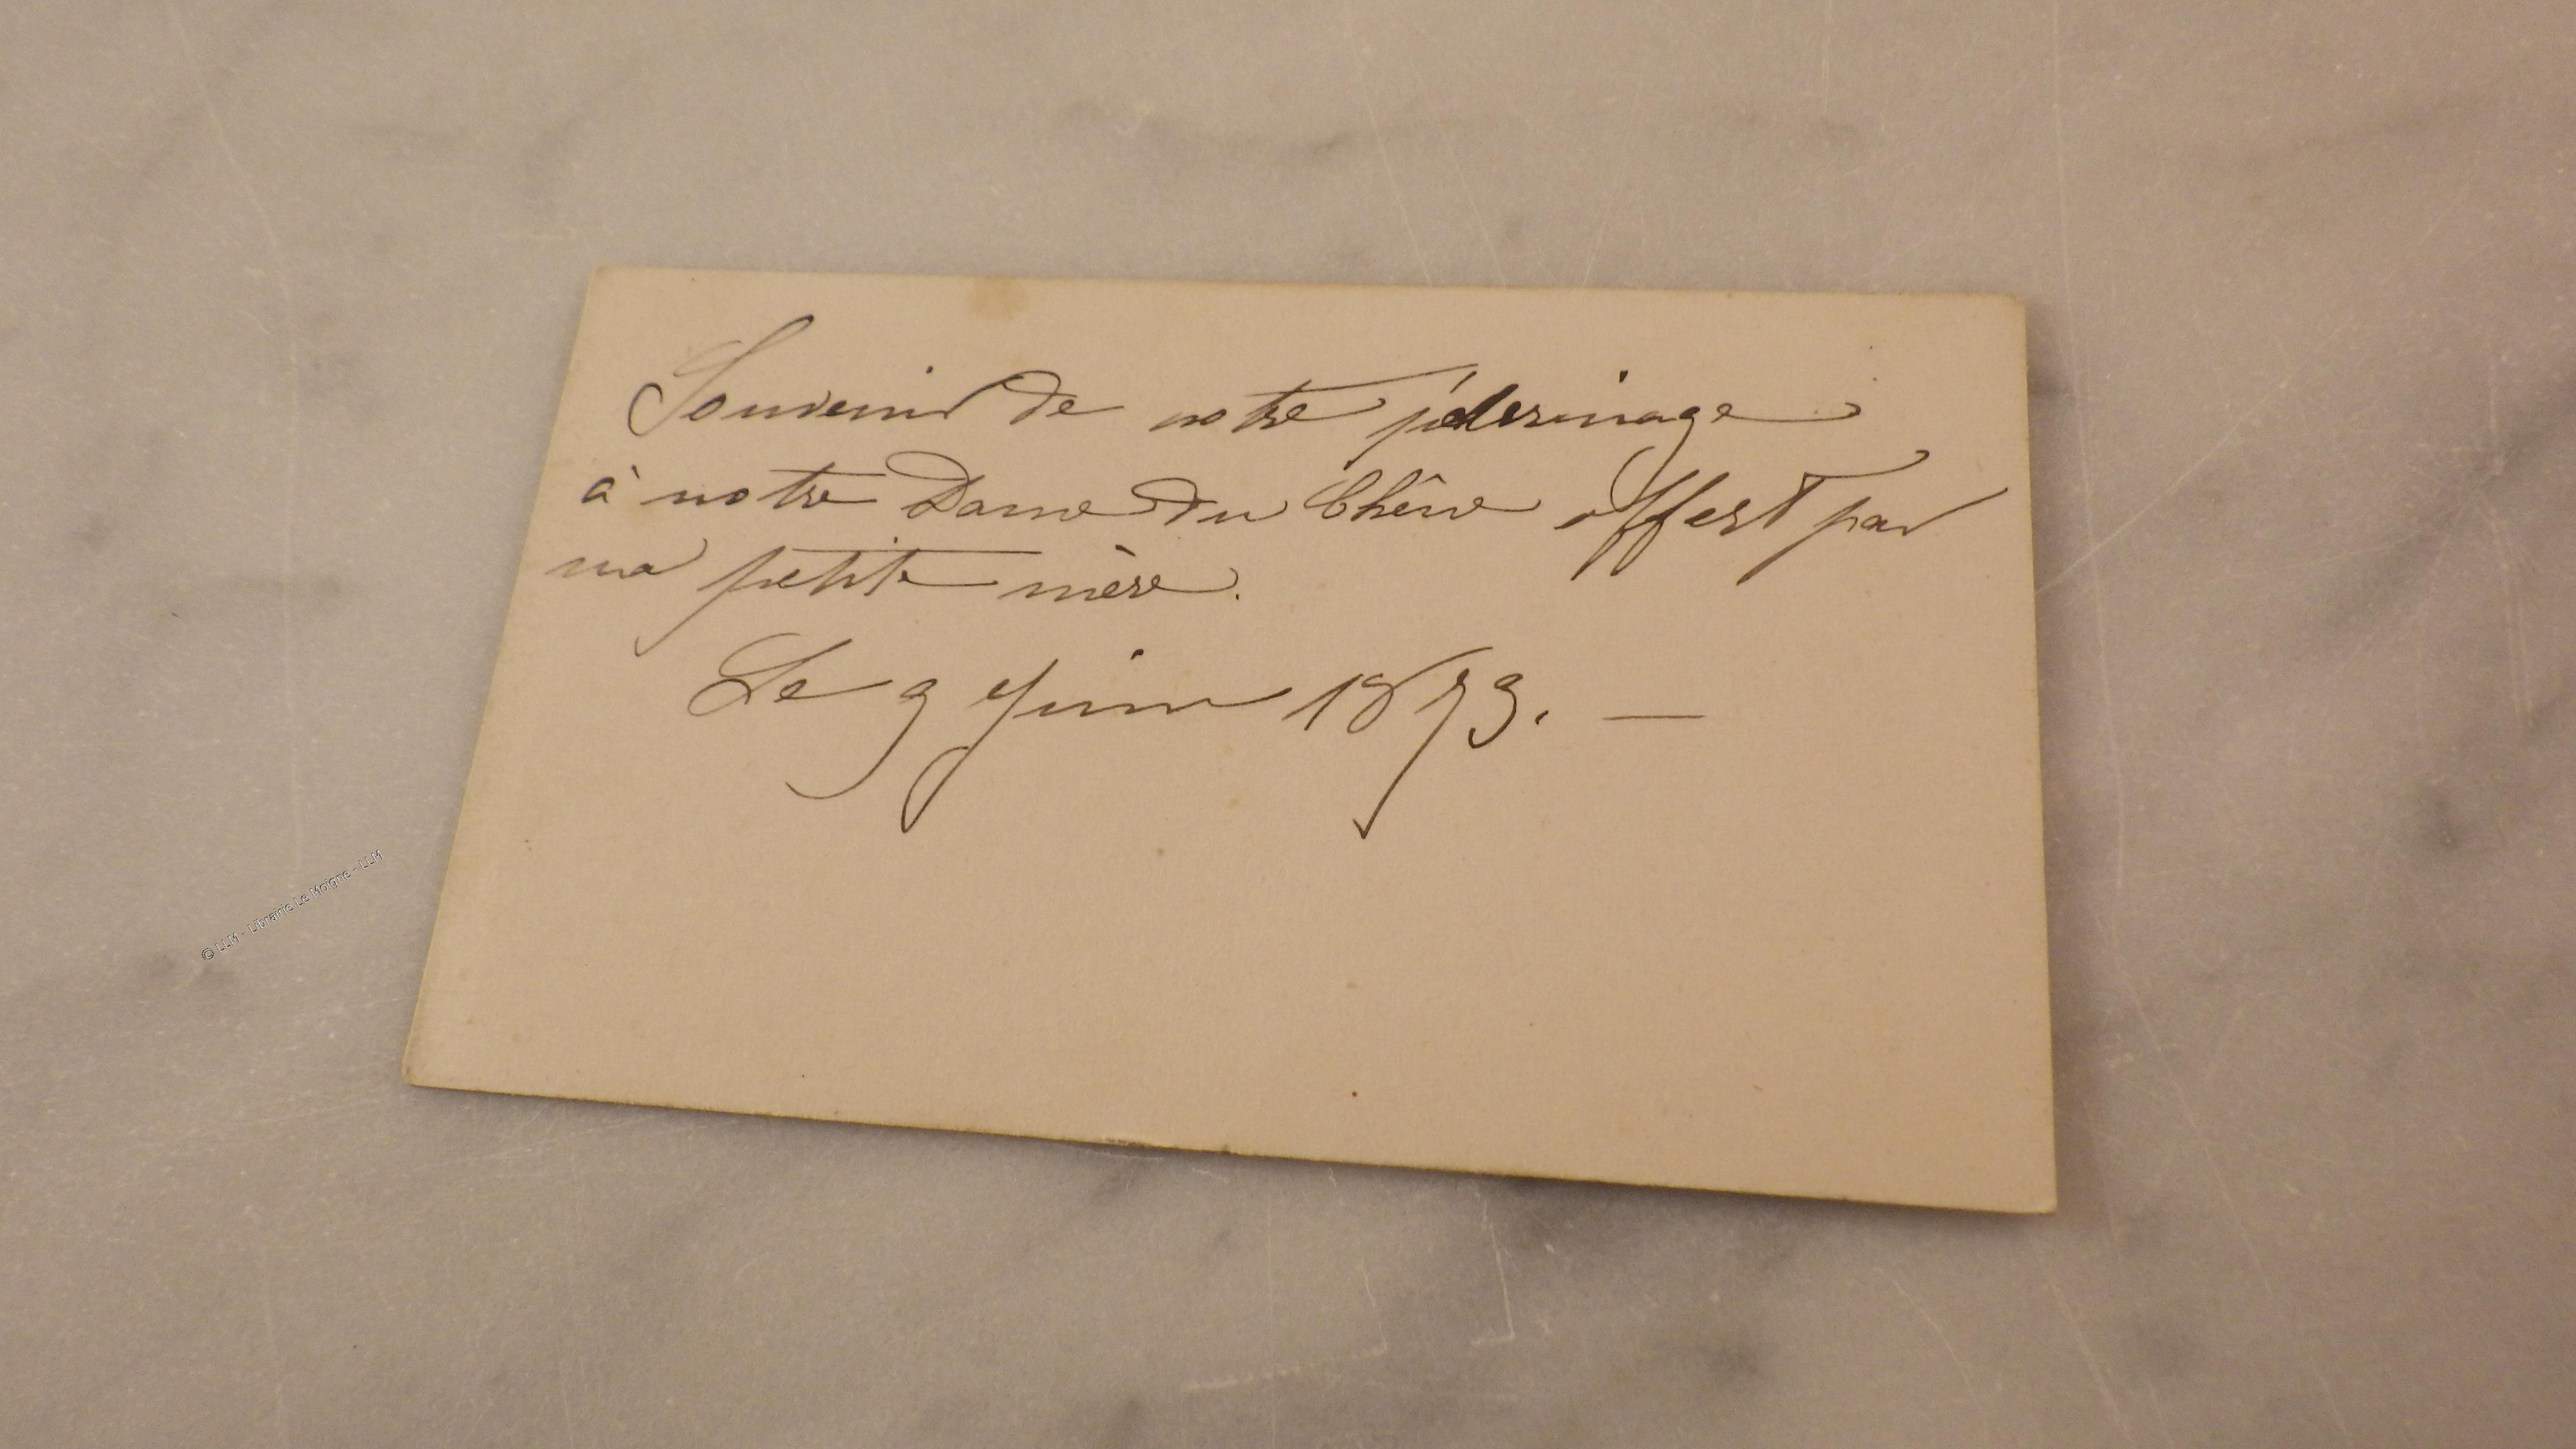 Souvenir de notre pélerinage
à notre Dame du Chêne offert par
ma petite mère.
Le 9 Juin 1873. —
© LLM - Librairie Le Moigne - LLM